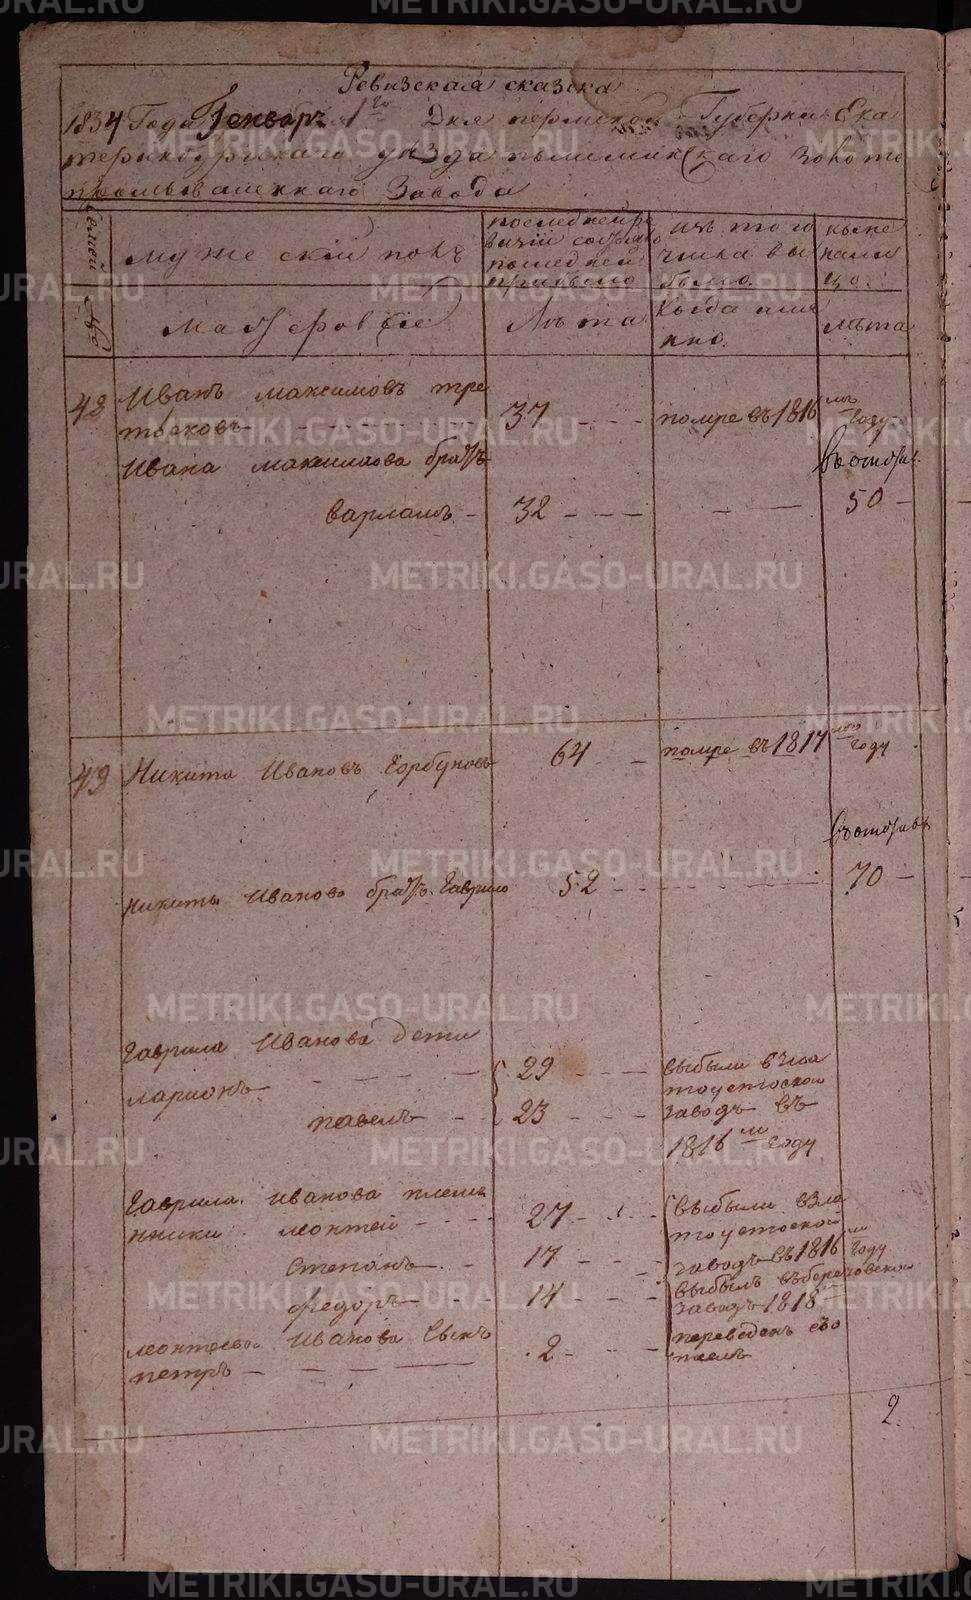 Ревизская сказка
1834 Года Генваря 1го Дня пермской Губернии Ека
теринбургскаго уезда пышминскаго Золото
промываленнаго Завода
семей
мужескiй полъ
последней ре
визiи состояло
последней
прибыло
изъ того
числа вы
было.
ныне
нали
цо.
Мастеровые
Лѣта
Когда име
нно.
лѣта
48 Иванъ максимовъ тре
тьяковъ 37 помре въ 1816мъ году
Ивана максимова братъ въ отстав.
варламъ 32 50
49 Никита Ивановъ Горбуновъ 64 помре въ 1817мъ году
въ отставк
никиты Иванова братъ Гаврило 52 70
Гаврила Иванова дети
ларионъ 29 выбыли в Зла
тоустоской
павелъ 23 заводъ въ
1816м году
Гаврила иванова племя
нники леонтей 27 выбыли в Зла
тоустоской
степанъ 17 заводъ въ 1816м году
федоръ 14 выбылъ въ березовской
заводъ 1818
леонтьева Иванова сынъ
петръ 2 переведенъ сво
2.
METRIKI.GASO-URAL.RU